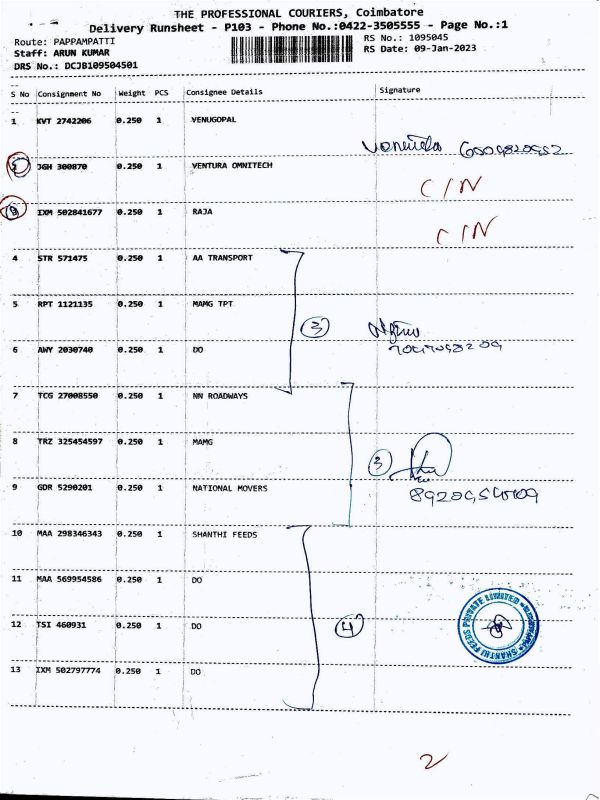 THE PROFESSIONAL COURIERS, Coimbatore
Delivery Runsheet - P103 - Phone No.:0422-3505555 - Page No.:1
Route: PAPPAMPATTI RS No.: 1095045
Staff: ARUN KUMAR RS Date: 09-Jan-2023
DRS No.: DCJB109504501
S No Consignment No Weight PCS Consignee Details Signature
1 KVT 2742206 0.250 1 VENUGOPAL
JGH 300870 0.250 1 VENTURA OMNITECH
C/N
IXM 502841677 0.250 1 RAJA
C/N
4 STR 571475 0.250 1 AA TRANSPORT
5 RPT 1121135 0.250 1 MAMG TPT
3
6 AWY 2030740 0.250 1 DO
7 TCG 27008550 0.250 1 NN ROADWAYS
8 TRZ 325454597 0.250 1 MAMG
3
9 GDR 5290201 0.250 1 NATIONAL MOVERS
10 MAA 298346343 0.250 1 SHANTHI FEEDS
11 MAA 569954586 0.250 1 DO
12 TSI 460931 0.250 1 DO
4
SHANTHI FEEDS PRIVATE LIMITED
13 IXM 502797774 0.250 1 DO
2